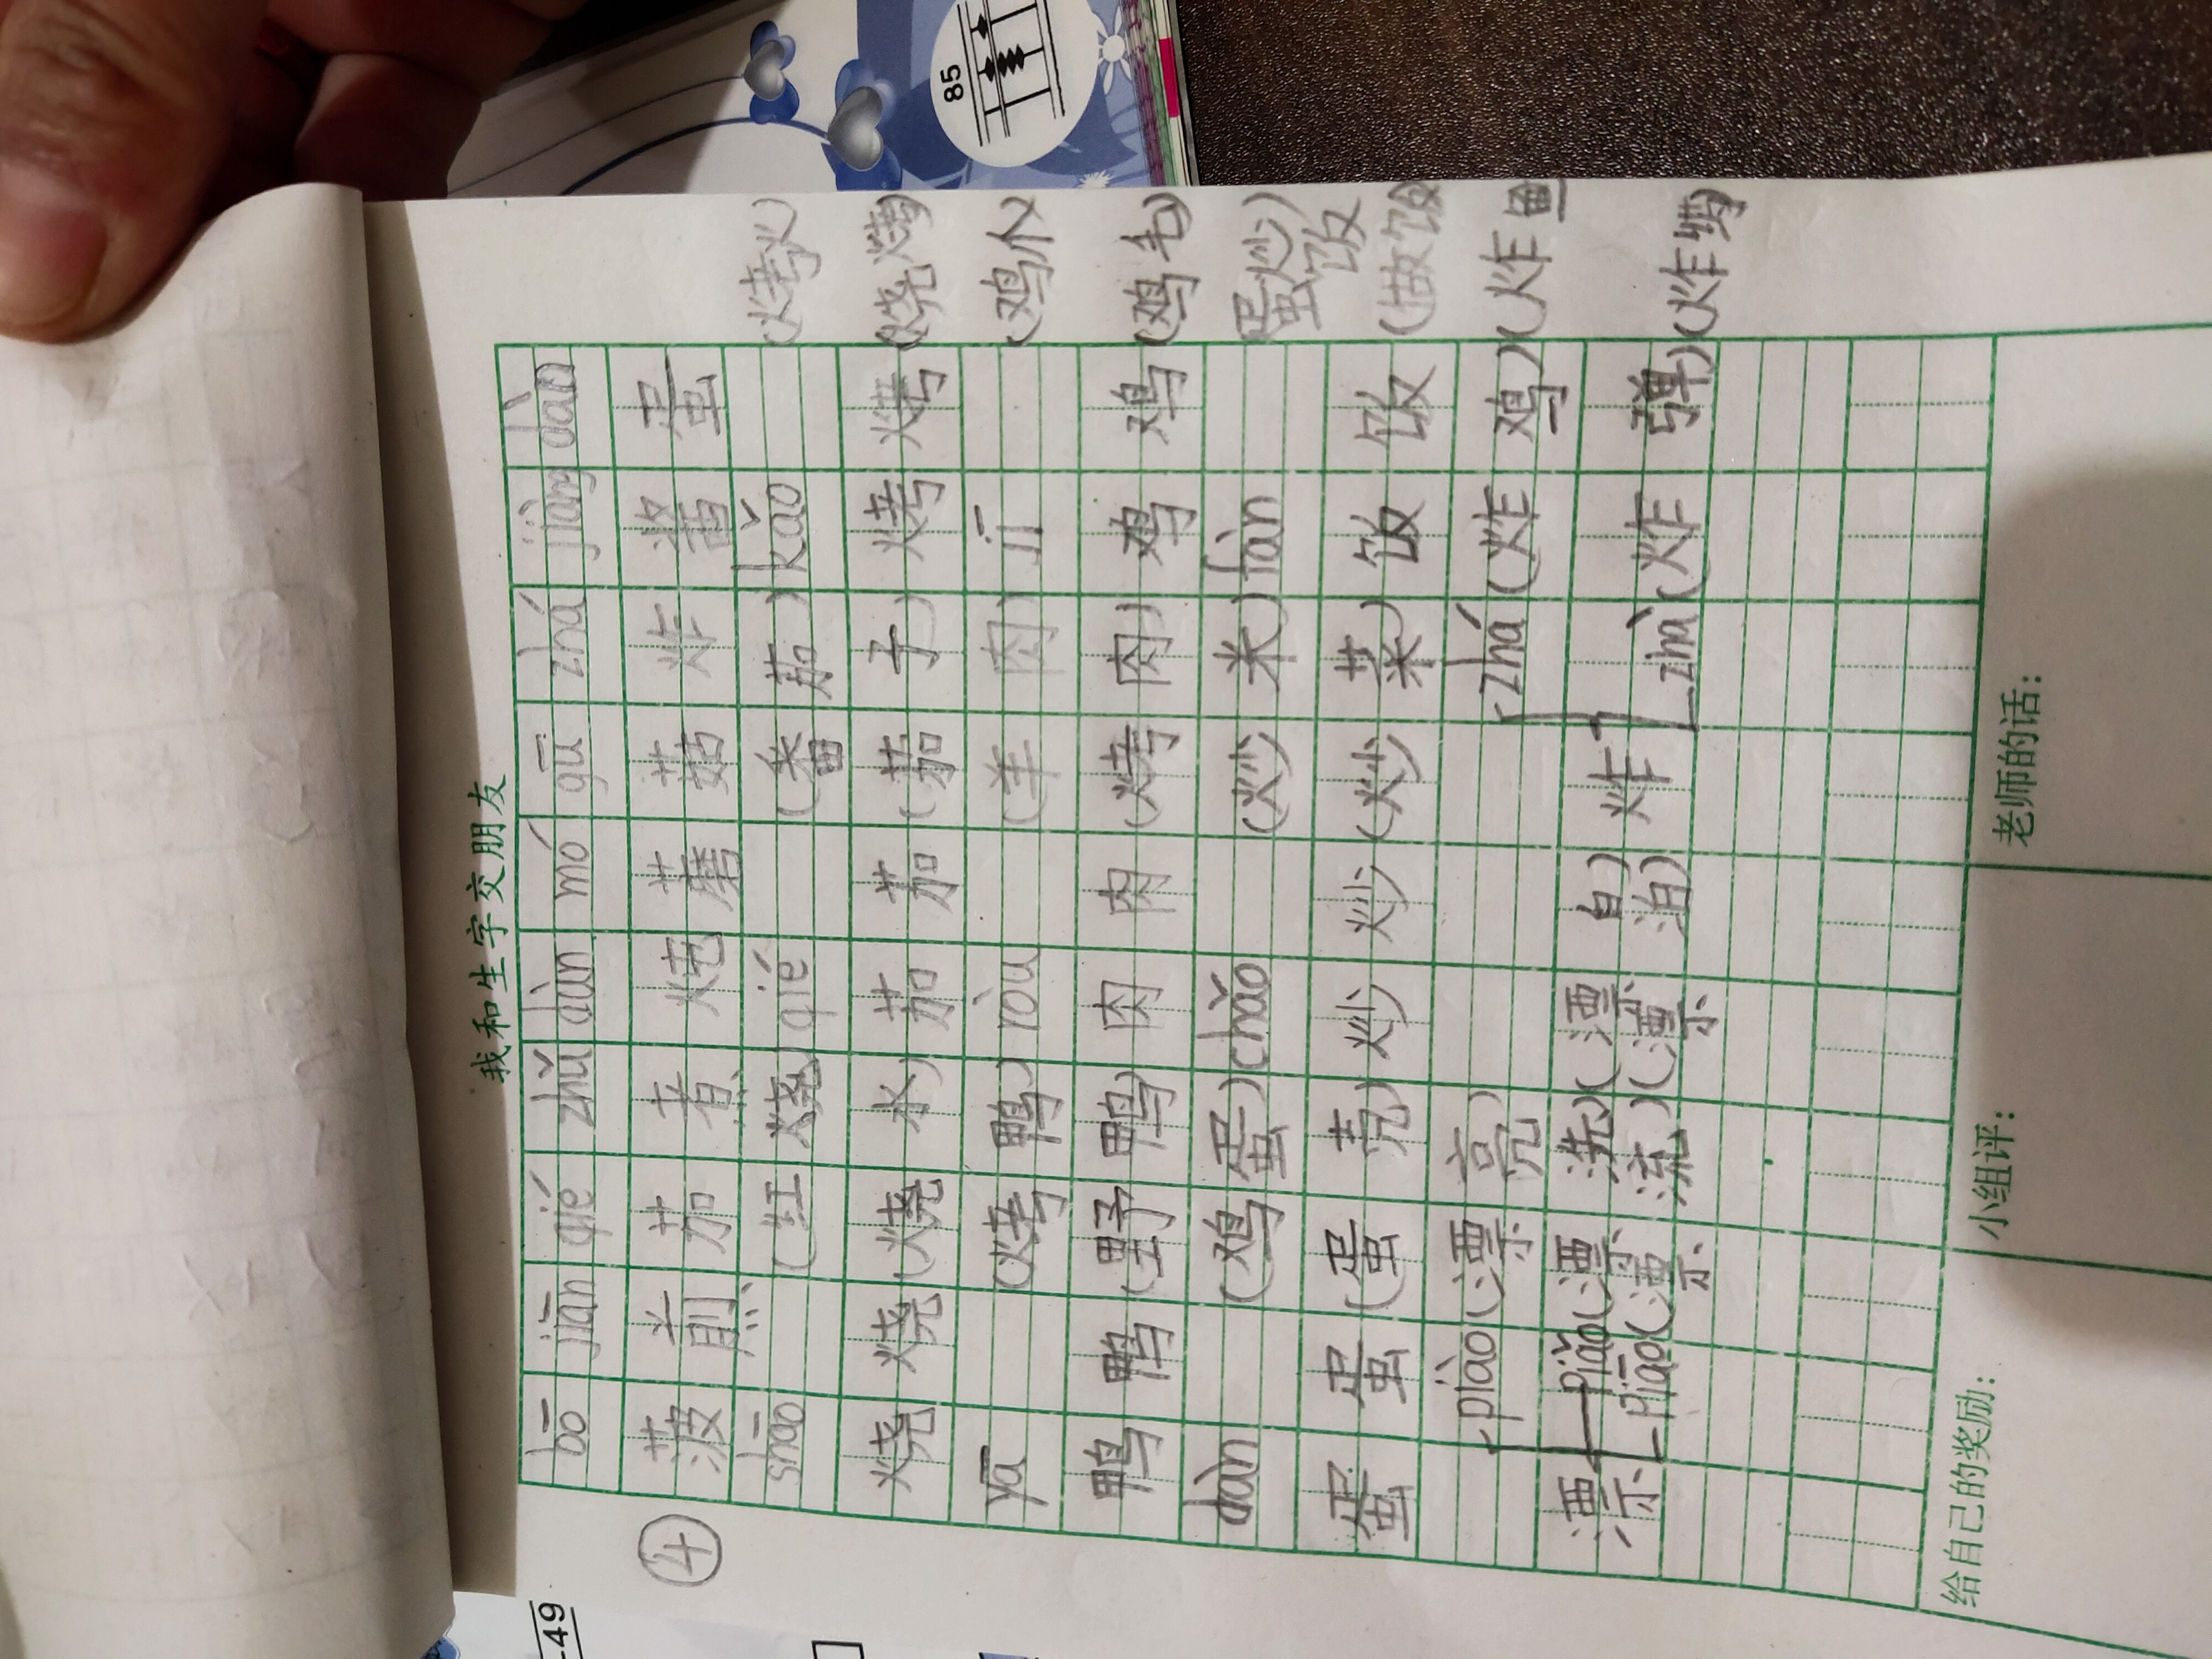 85
我和生字交朋友
bō jiān qié zhǔ dàn mó gū zhá jiàng dàn
④ 菠 煎 茄 煮 蘑 菇 炸 酱 蛋
shāo (红烧) qié (番茄) kǎo (烤火)
烧 烧 (烧水) 茄 茄 (茄子) 烤 烤 (烧烤)
yā (烤鸭) ròu (羊肉) jī (鸡
鸭 鸭 (野鸭) 肉 肉 (烤肉) 鸡 鸡 (鸡毛)
dàn (鸡蛋) chǎo (炒米) fàn 蛋炒饭
蛋 蛋 (蛋壳) 炒 炒 (炒菜) 饭 饭 (做饭
piào (漂亮) zhá (炸鸡) (炸鱼
漂 piǎo (漂洗) (漂白) 炸
piāo (漂流) (漂泊) zhà (炸弹) (炸
给自己的奖励:
小组评:
老师的话:
-49